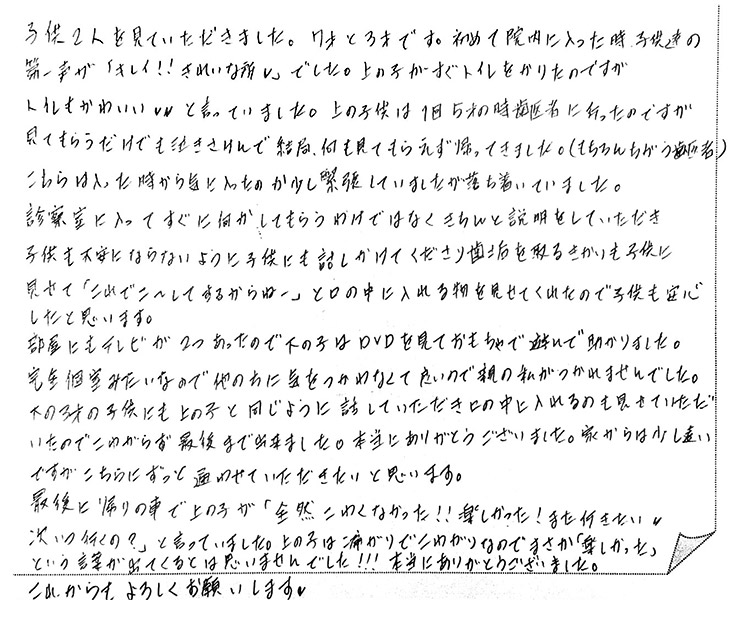 子供2人を見ていただきました。7才と3才です。初めて院内に入った時、子供達の
第一声が「キレイ!!きれいな所♥」でした。上の子がすぐトイレをかりたのですが
トイレもかわいい♥♥と言っていました。上の子供は1回5才の時歯医者に行ったのですが
見てもらうだけでも泣きさけんで結局、何も見てもらえず帰ってきました。(もちろんちがう歯医者)
こちらは入った時から気に入ったのか少し緊張していましたが落ち着いていました。
診察室に入ってすぐに何かしてもらうわけではなくきちんと説明をしていただき
子供も不安にならないように子供にも話しかけてくださり歯型を取るきかいも子供に
見せて「これでこ〜してするからねー」と口の中に入れる物を見せてくれたので子供も安心
したと思います。
部屋にもテレビが2つあったので下の子はDVDを見ておもちゃで遊んで助かりました。
完全個室みたいなので他の方に気をつかわなくて良いので親の私がつかれませんでした。
下の3才の子供にも上の子と同じように話していただき口の中に入れるのも見せていただ
いたのでこわがらず最後まで出来ました。本当にありがとうございました。家からは少し遠い
ですがこちらにずっと通わせていただきたいと思います。
最後に帰りの車で上の子が「全然こわくなかった!!楽しかった!また行きたい♥
次いつ行くの?」と言っていました。上の子は痛がりでこわがりなのでまさか「楽しかった」
という言葉が出てくるとは思いませんでした!!!本当にありがとうございました。
これからもよろしくお願いします♥